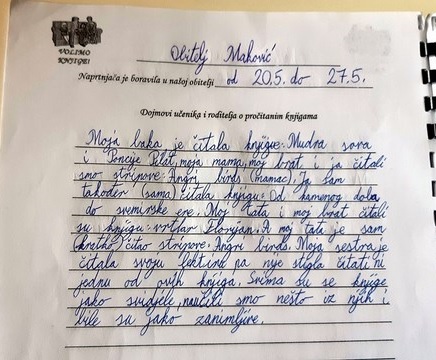 VOLIMO
KNJIGE!
Obitelj Maković
Naprtnjača je boravila u našoj obitelji od 20.5. do 27.5.
Dojmovi učenika i roditelja o pročitanim knjigama
Moja baka je čitala knjige: Mudra sova
i Poncije Pilat, moja mama, moj brat i ja čitali
smo stripove: Angri birds (mamac). Ja sam
također (sama) čitala knjigu: Od kamenog doba
do svemirske ere. Moj tata i moj brat čitali
su knjigu: vrtlar Florijan. A moj tata je sam
(kratko) čito stripove: Angri birds. Moja sestra je
čitala svoju lektiru pa nije stigla čitati ni
jednu od ovih knjiga. Svima su se knjige
jako svidjele, naučili smo nešto iz njih i
bile su jako zanimljive.